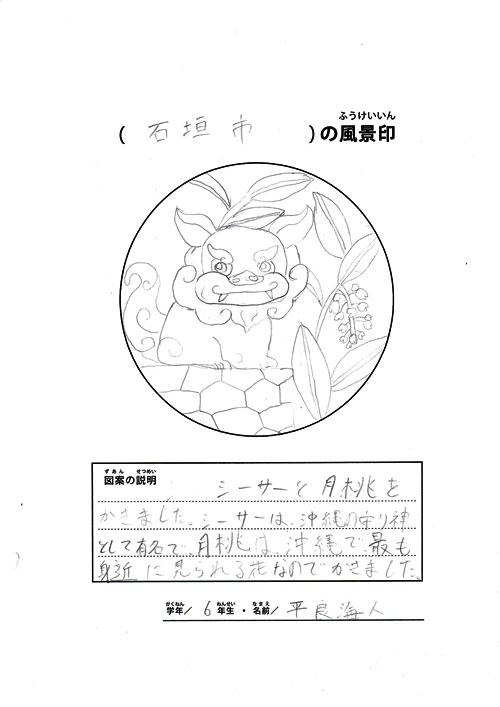 ふうけいいん
(石垣市)の風景印
ずあん せつめい
図案の説明
シーサーと月桃を
かきました。シーサーは、沖縄の守り神
として有名で、月桃は、沖縄で最も
身近に見られる花なのでかきました。
がくねん ねんせい なまえ
学年/ 6 年生・名前/ 平良海人